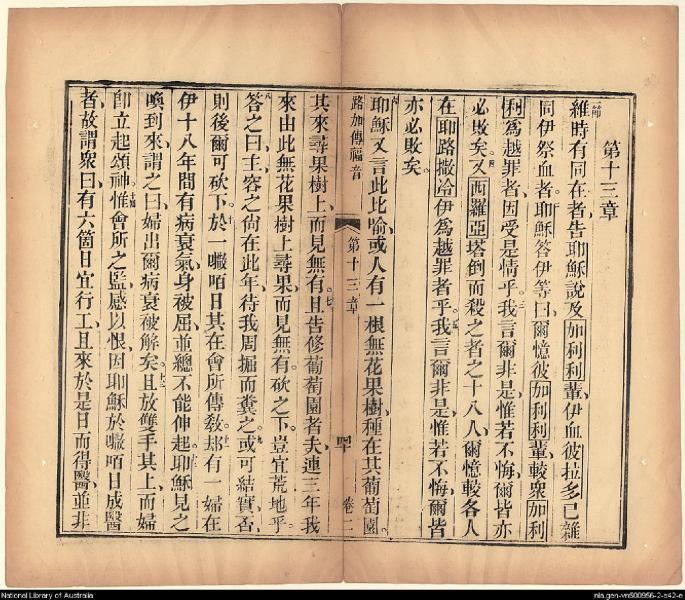 第十三章
一節
維時有同在者、告耶穌說及加利利輩、伊血彼拉多已雜
同伊祭血者。耶穌答伊等曰、爾憶彼加利利輩、較眾加利
利爲越罪者、因受是情乎。我言爾非是、惟若不悔、爾皆亦
必敗矣。又西羅亞塔倒而殺之者之十八人、爾憶較各人
在耶路撒冷伊爲越罪者乎。我言爾非是、惟若不悔爾皆
亦必敗矣。
路加傳福音
第十三章
卷二
耶穌又言此比喻、或人有一根無花果樹、種在其葡萄園。
其來尋果樹上、而見無有。且告修葡萄園者、夫連三年我
來由此無花果樹上尋果、而見無有。砍之下。豈宜荒地乎。
答之曰、主、容之尚在此年、待我周掘而糞之。或可結實、否
則後爾可砍下。於一㘔咟日其在會所傳教。却有一婦在
伊十八年間有病衰氣、身被屈、並總不能伸起。耶穌見之
喚到來、謂之曰、婦出爾病衰被解矣。且放雙手其上、而婦
卽立起頌神。惟會所之監感以恨、因耶穌於㘔咟日成醫
者、故謂眾曰、有六箇日宜行工、且來於是日而得醫、並非
National Library of Australia
nla.gen-vn500956-2-s42-e